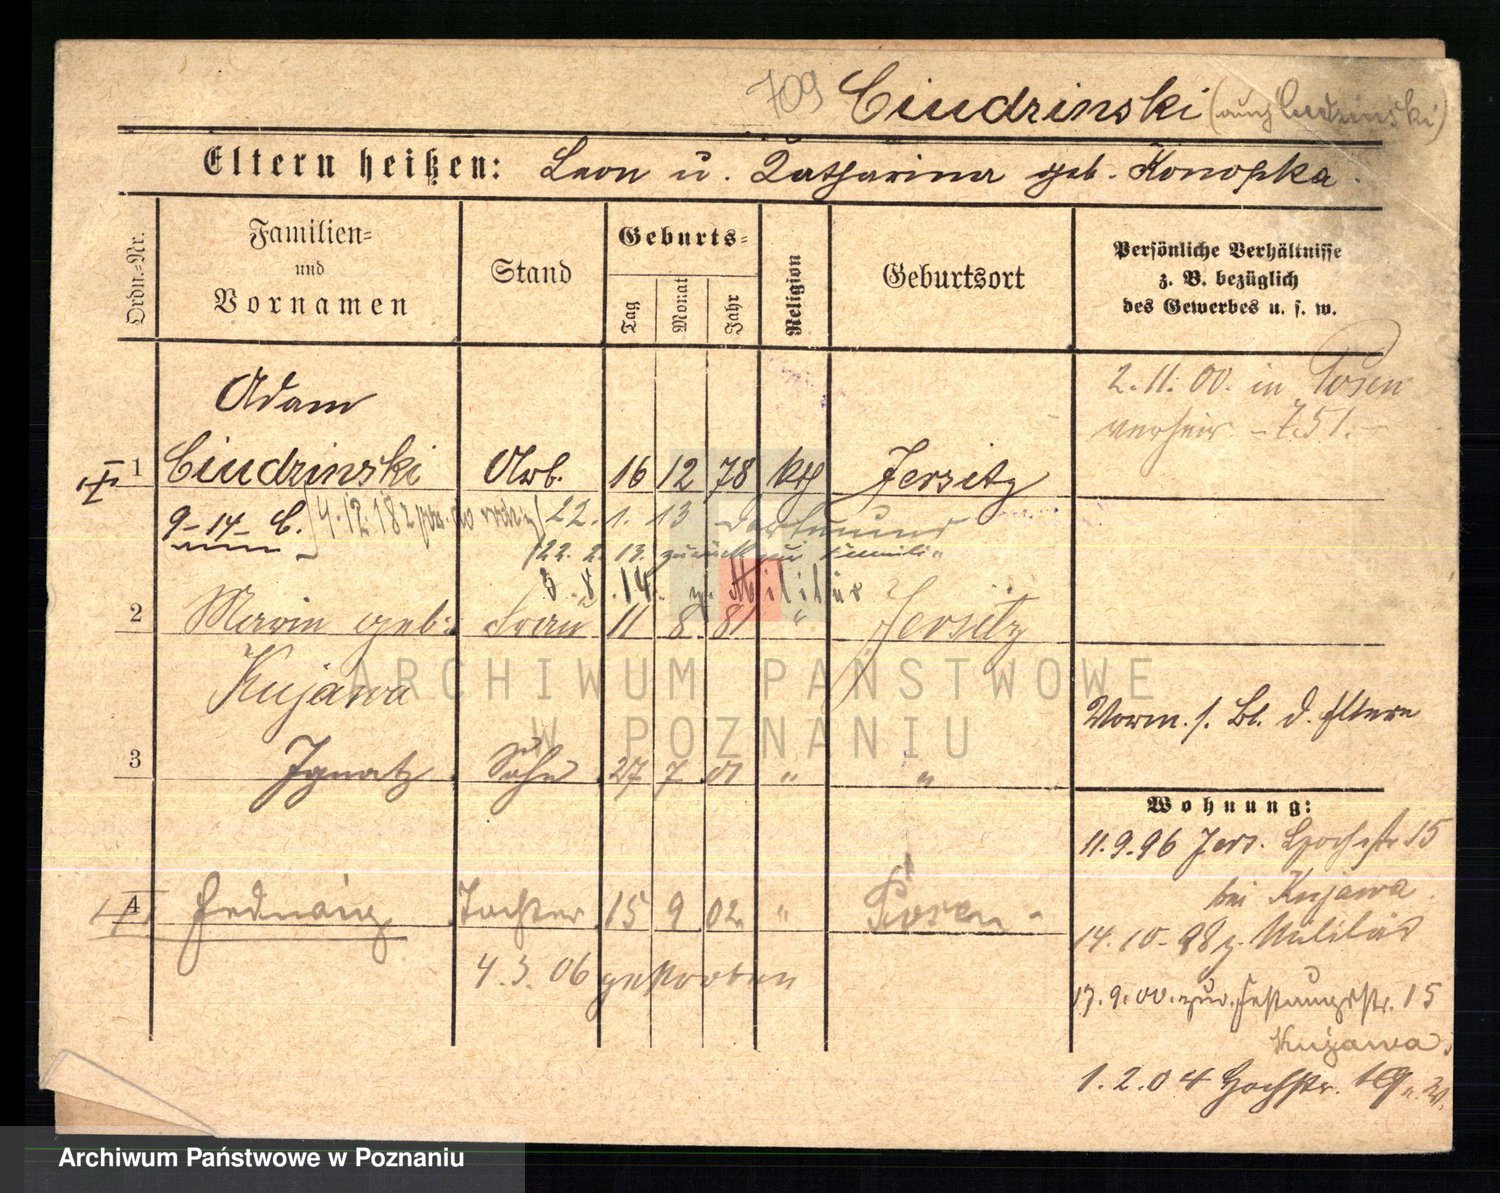 709 Ciudzinski (auch Cudzinski)
Eltern heißen: Leon u. Katharina geb. Konopka.
Ordn.-Nr.
Familien-
und
Vornamen
Stand
Geburts-
Tag
Monat
Jahr
Religion
Geburtsort
Persönliche Verhältnisse
z. B. bezüglich
des Gewerbes u. s. w.
Adam
1 Ciudzinski Arb. 16 12 78 kth Jersitz
2.11.00. in Posen
verheir. - 751. -
9-14- C.
22. 1. 13 Dortmund
22. 2. 13. zurück zur Famili
3. 8. 14. z. Militär
2 Marie geb. Frau 11 8 81 " Jersitz
Kujawa
Vorm. s. Bl. d. Eltern
3 Ignatz Sohn 27 7 01 " "
4 Hedwig Tochter 15 9 02 " Posen
4. 3. 06 gestorben
Wohnung:
11.9.96 Jers. Hochstr. 15
bei Kujawa
14.10.98 z. Militär
17.9.00. zur. Festungsstr. 15
Kujawa.
1.2.04 Hochstr. 19
ARCHIWUM PAŃSTWOWE
W POZNANIU
Archiwum Państwowe w Poznaniu